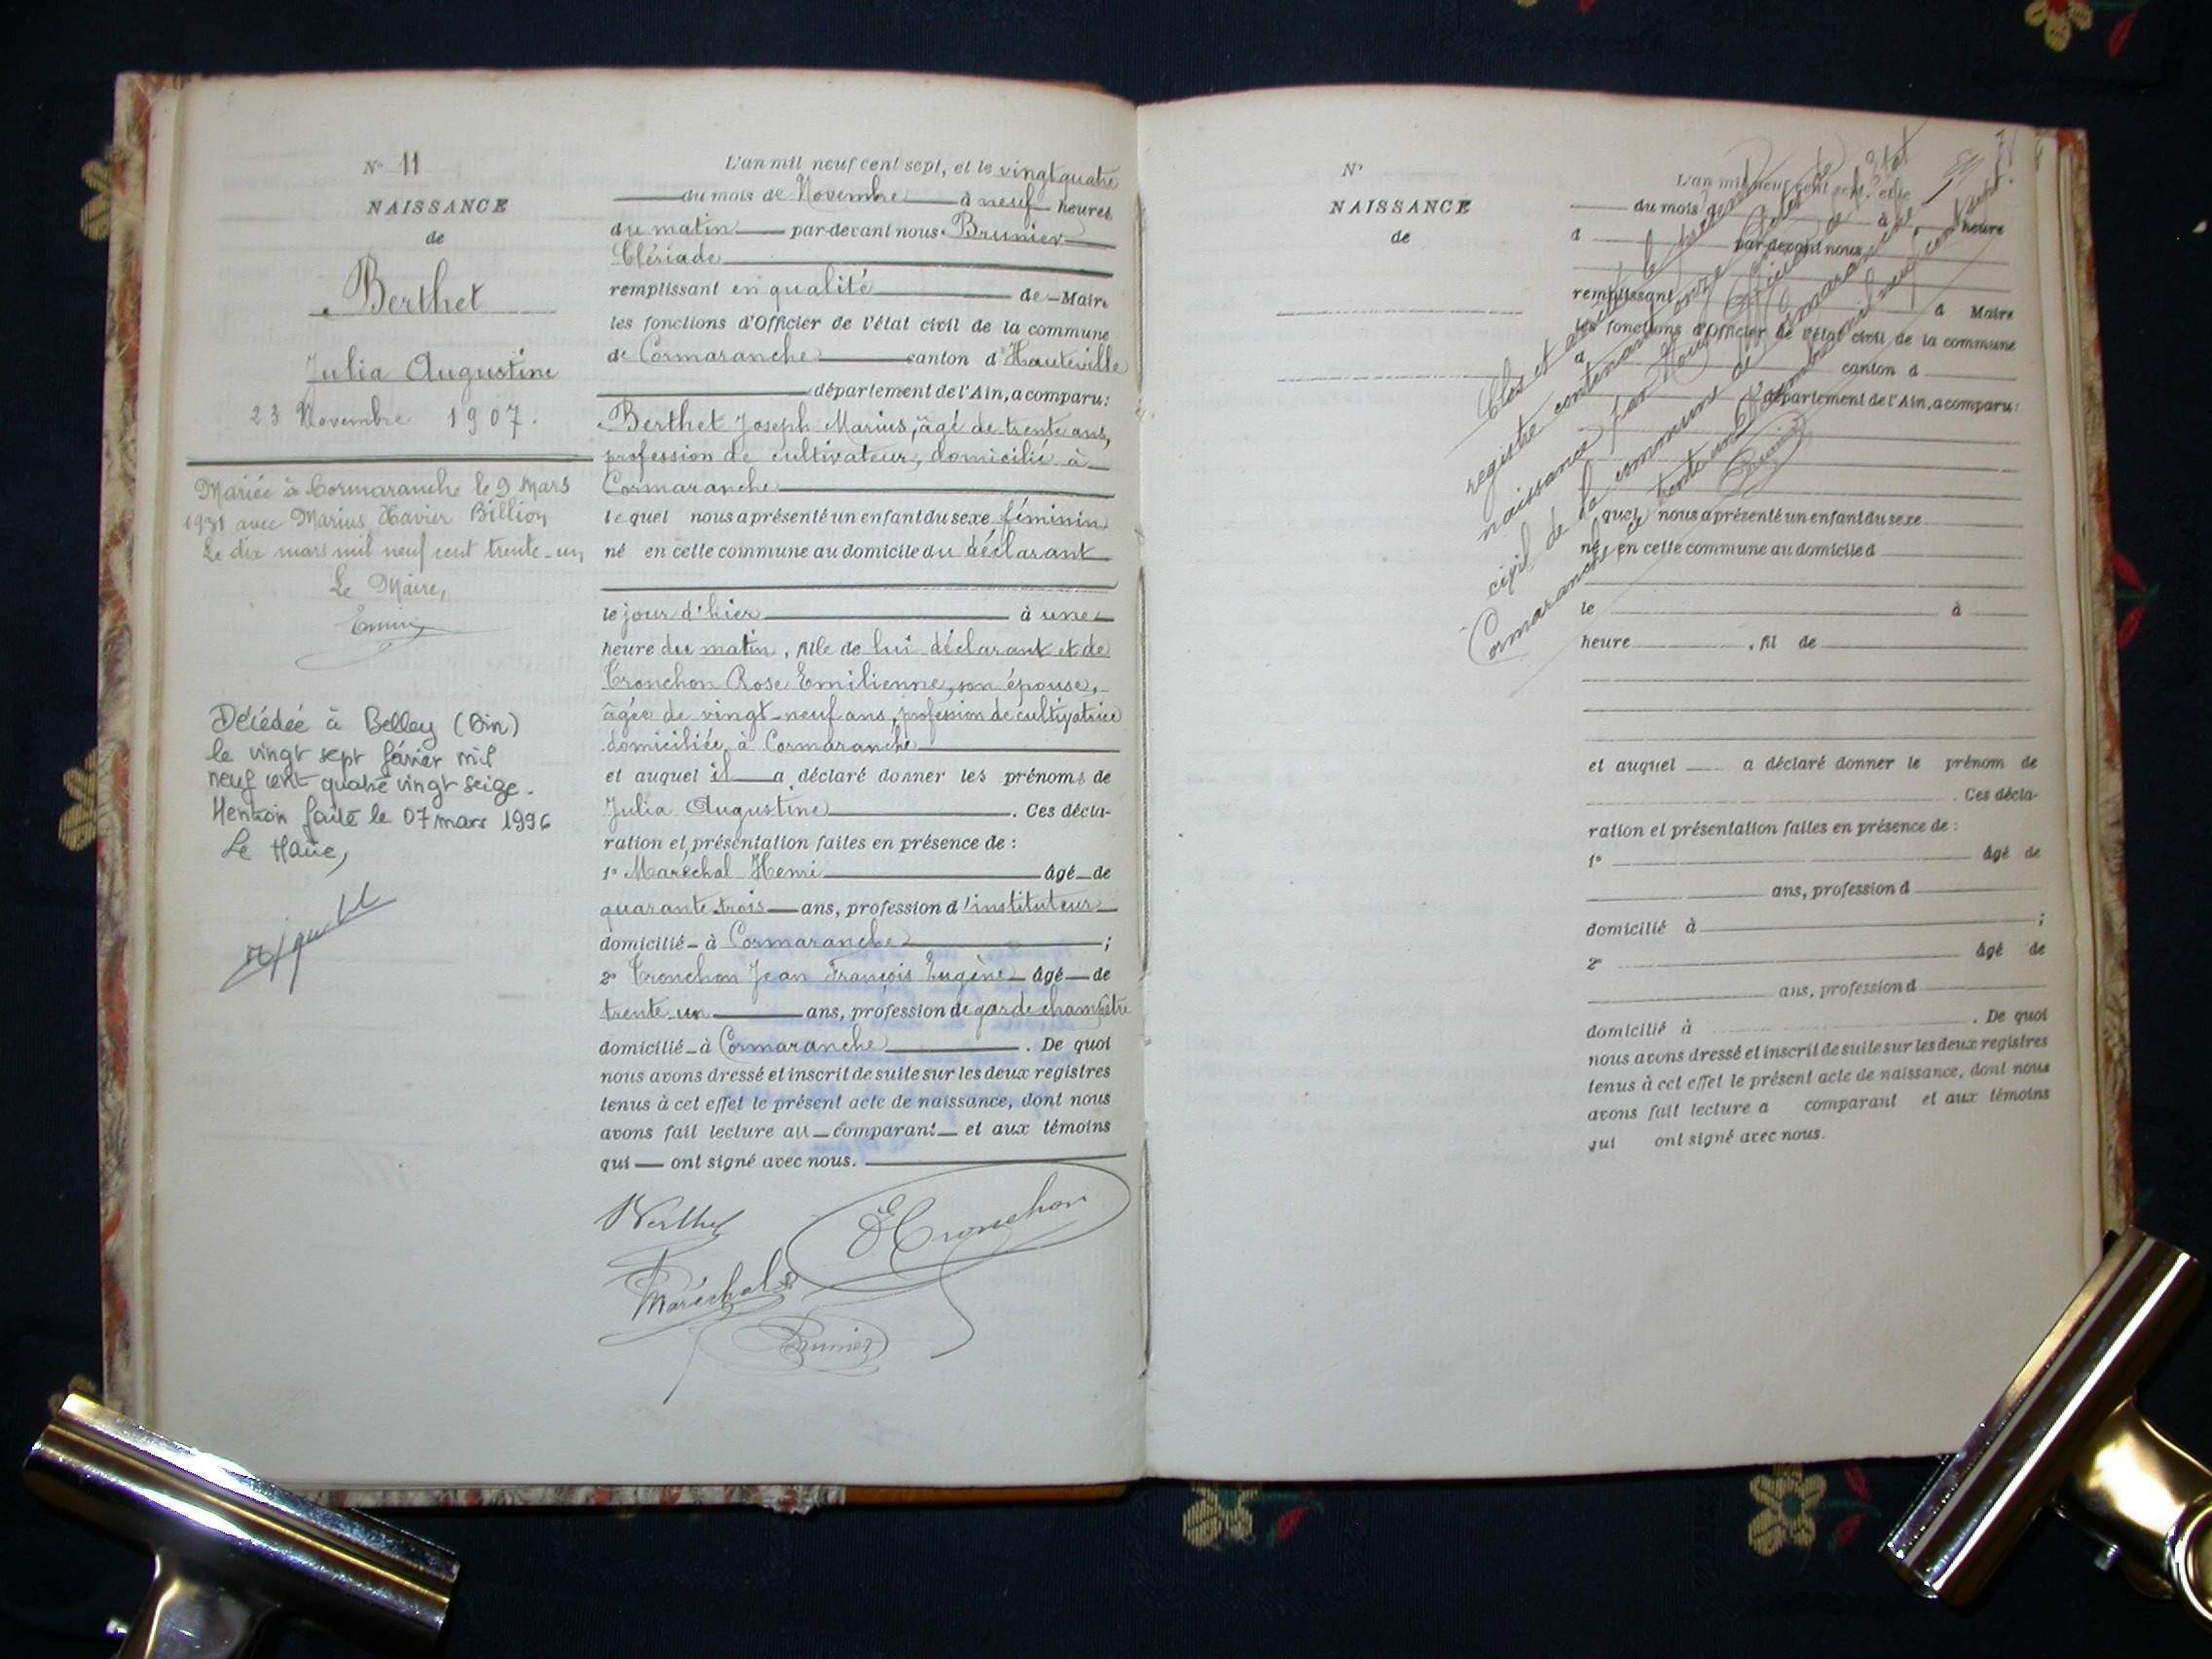 N° 11
NAISSANCE
de
Berthet
Julia Augustine
23 Novembre 1907.
Mariée à Cormaranche le 9 Mars
1931 avec Marius Xavier Billion
Le dix mars mil neuf cent trente-un,
Le Maire,
Décédée à Belley (Ain)
le vingt sept février mil
neuf cent quatre vingt seize.
Mention faite le 07 mars 1996
Le Maire,
L'an mil neuf cent sept, et le vingt quatre
du mois de Novembre à neuf heures
du matin par-devant nous Brunier
Clériade
remplissant en qualité de Maire
les fonctions d'Officier de l'état civil de la commune
de Cormaranche canton d'Hauteville
département de l'Ain, a comparu:
Berthet Joseph Marius, âgé de trente ans,
profession de cultivateur, domicilié à
Cormaranche
lequel nous a présenté un enfant du sexe féminin
né en cette commune au domicile du déclarant
le jour d'hier à une
heure du matin, fille de lui déclarant et de
Tronchon Rose Emilienne, son épouse,
âgée de vingt-neuf ans, profession de cultivatrice
domiciliée à Cormaranche
et auquel il a déclaré donner les prénoms de
Julia Augustine. Ces décla-
ration et présentation faites en présence de :
1° Maréchal Henri âgé de
quarante trois ans, profession d'instituteur
domicilié à Cormaranche ;
2° Tronchon Jean François Eugène âgé de
trente un ans, profession de garde champêtre
domicilié à Cormaranche. De quoi
nous avons dressé et inscrit de suite sur les deux registres
tenus à cet effet le présent acte de naissance, dont nous
avons fait lecture au comparant et aux témoins
qui ont signé avec nous.
Berthet
E Tronchon
Maréchal
Brunier
N°
NAISSANCE
de
L'an mil neuf cent sept, et le
du mois d à heure
d par-devant nous
remplissant d Maire
les fonctions d'Officier de l'état civil de la commune
d canton d
département de l'Ain, a comparu:
quel nous a présenté un enfant du sexe
né en cette commune au domicile d
le à
heure , fil de
et auquel a déclaré donner le prénom de
. Ces décla-
ration et présentation faites en présence de :
1° âgé de
ans, profession d
domicilié à ;
2° âgé de
ans, profession d
domicilié à . De quoi
nous avons dressé et inscrit de suite sur les deux registres
tenus à cet effet le présent acte de naissance, dont nous
avons fait lecture a comparant et aux témoins
qui ont signé avec nous.
Clos et arrêté le présent
registre contenant onze actes de
naissance par Nous Officier de l'Etat
civil de la commune de Cormaranche
Cormaranche, ce trente un Décembre mil neuf cent sept.
Brunier